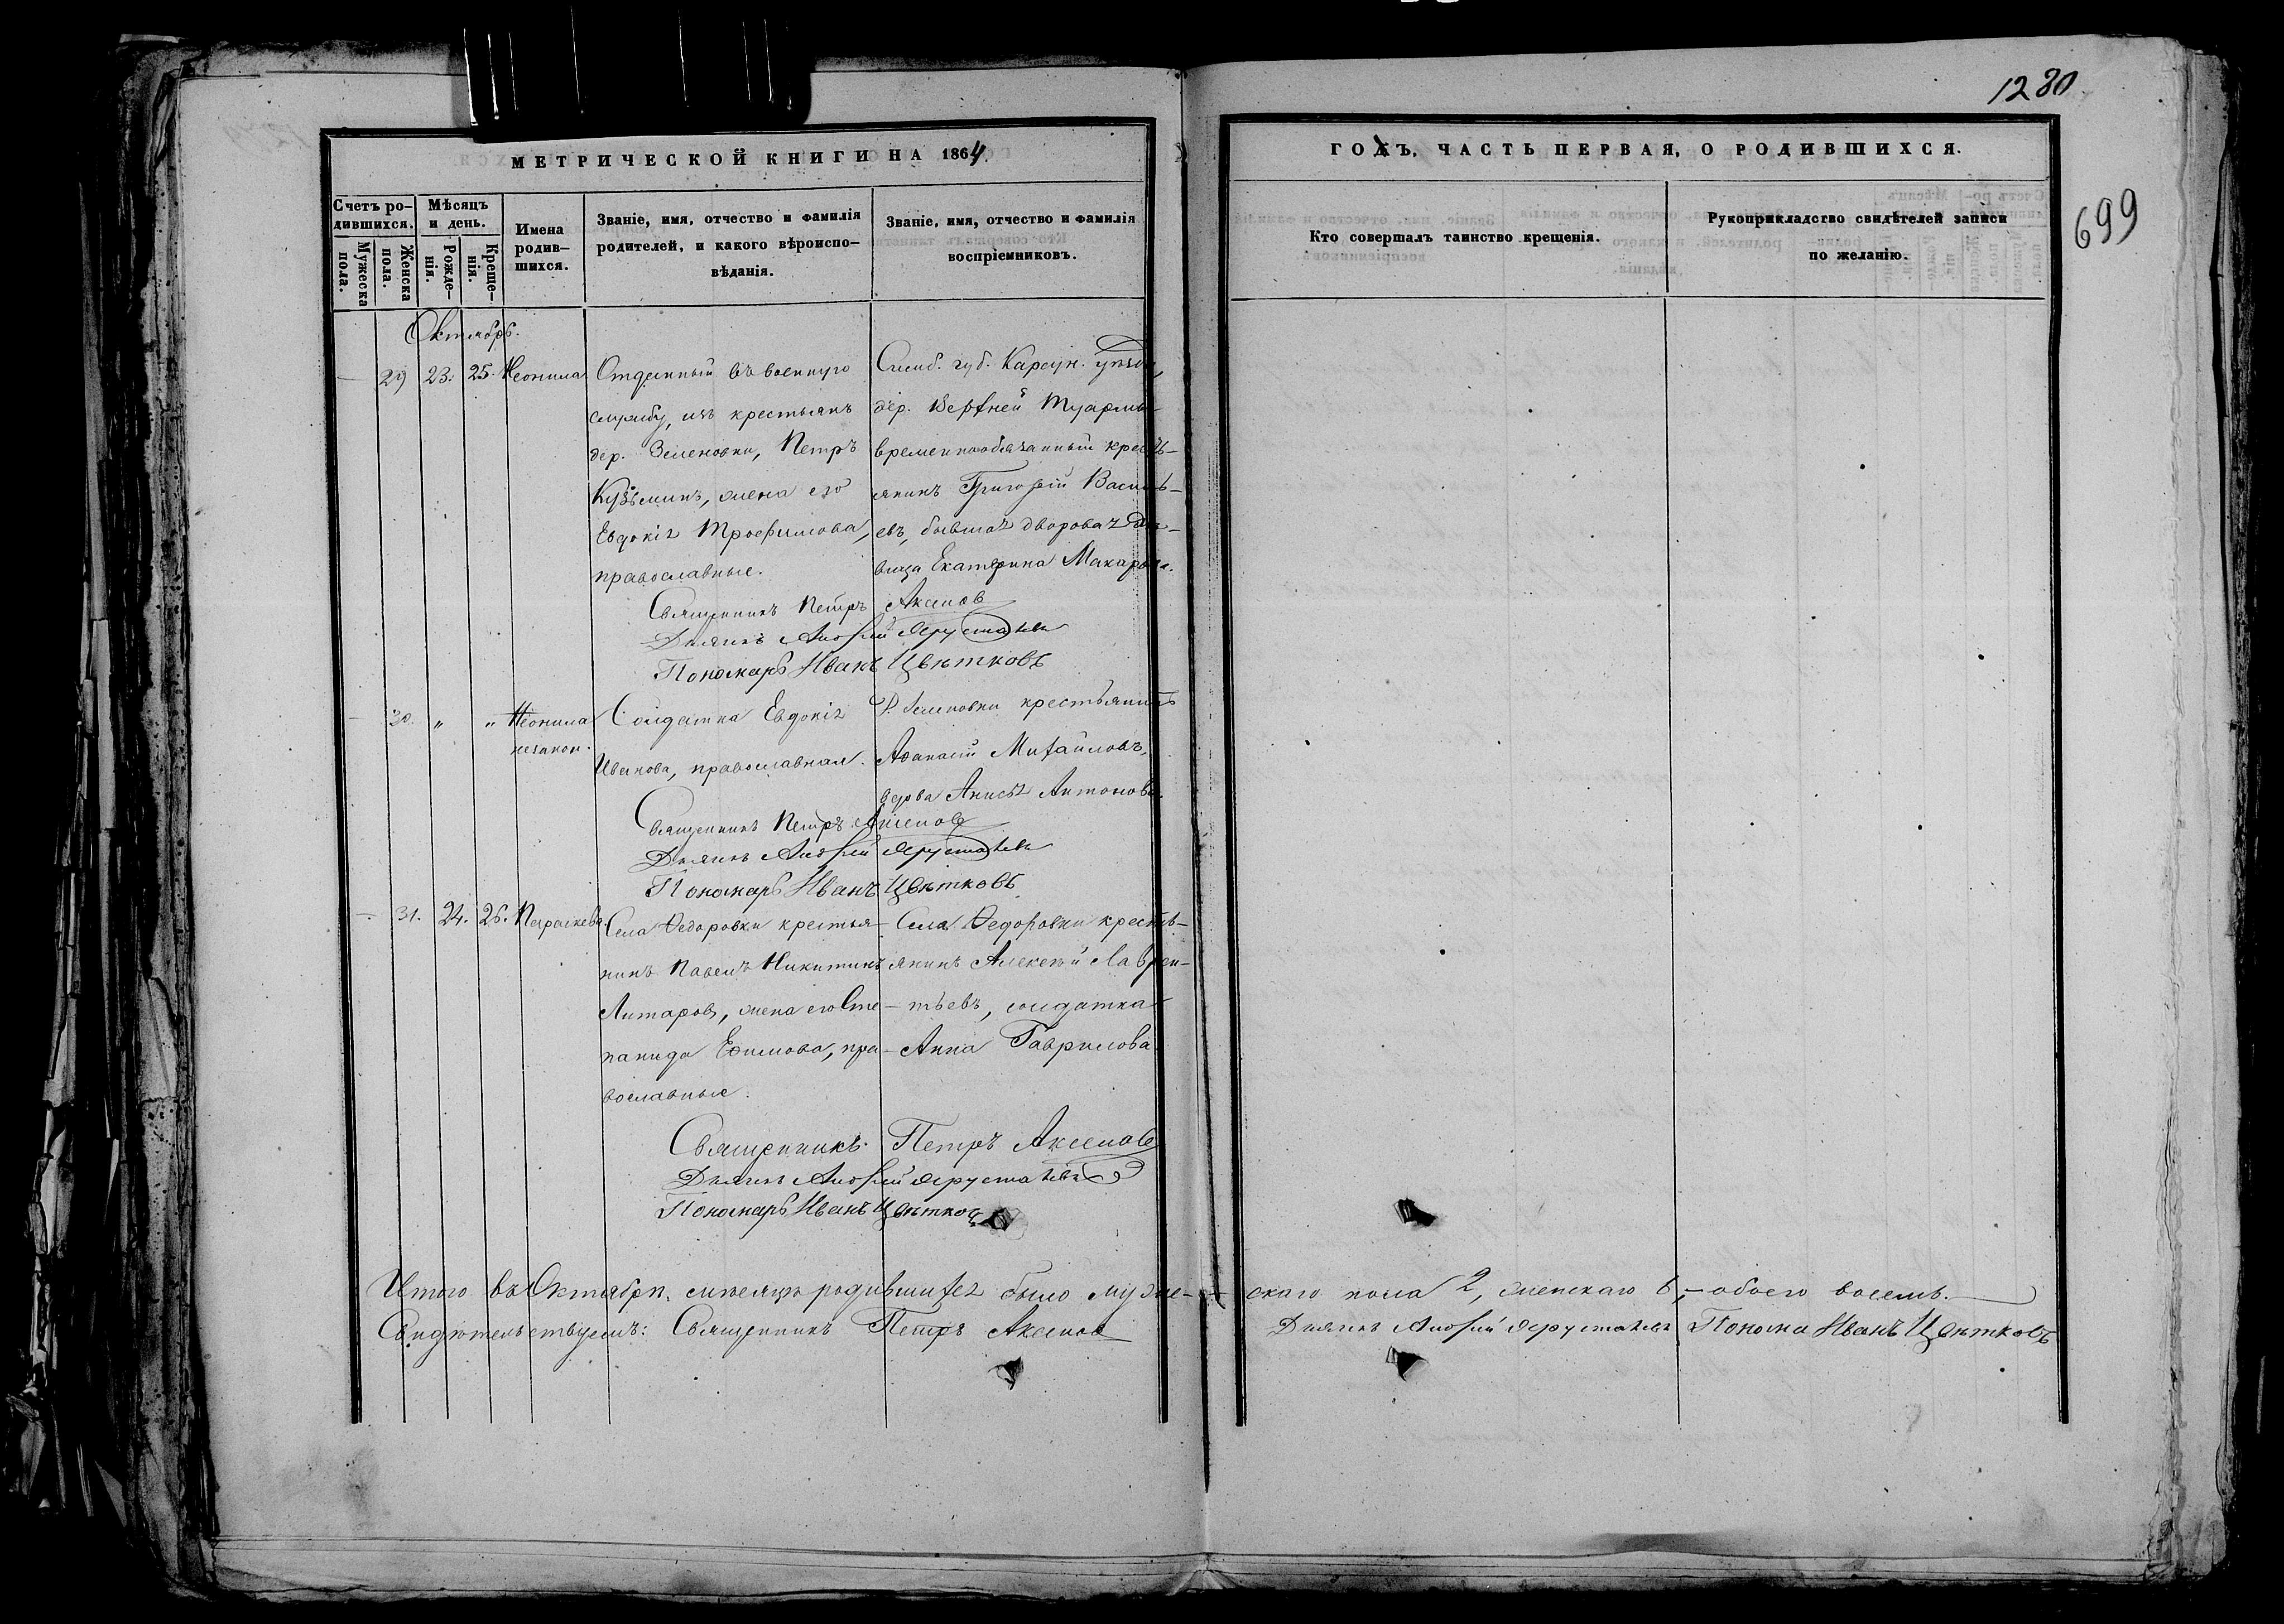 1280
699
МЕТРИЧЕСКОЙ КНИГИ НА 1864
ГОДЪ, ЧАСТЬ ПЕРВАЯ, О РОДИВШИХСЯ.
Счетъ ро-
дившихся.
Мужеска
пола.
Женска
пола.
Мѣсяцъ
и день.
Рожде-
нія.
Креще-
нія.
Имена
родив-
шихся.
Званіе, имя, отчество и фамилія
родителей, и какого вѣроиспо-
вѣданія.
Званіе, имя, отчество и фамилія
воспріемниковъ.
Кто совершалъ таинство крещенія.
Рукоприкладство свидѣтелей записи
по желанію.
Октябрь.
29 23. 25. Неонила
Отданный въ военную
службу, изъ крестьянъ
дер. Зеленовки, Петръ
Кузьминъ, жена его
Евдокія Трофимова,
православные.
Симб. губ. Карсун. уѣзда,
дер. Верхней Туармы
временнообязанный кресть-
янинъ Григорій Василь-
евъ, бывшая дворовая дѣ-
вица Екатерина Макарова.
Священникъ Петръ Аксенов
Дьячкъ
Пономарь Иванъ Цвѣтковъ
30. „ „ Неонила
незакон.
Солдатка Евдокія
Иванова, православная.
Д. Зеленовки крестьянинъ
Афанасій Михайловъ,
вдова Анисія Антонова.
Священникъ Петръ Аксенов
Дьячкъ
Пономарь Иванъ Цвѣтковъ
31. 24. 26. Параскева.
Села Федоровки крестья-
нинъ Павелъ Никитинъ
жена его Сте-
панида Ефимова, пра-
вославные.
Села Федоровки кресть-
янинъ Алексѣй Лаврен-
тьевъ, солдатка
Анна Гаврилова
Священникъ Петръ Аксенов
Дьячкъ
Пономарь Иванъ Цвѣтков
Итого въ Октябрѣ мѣсяцѣ родившихся было муже-скаго пола 2, женскаго 6, – обоего восемь.
Свидѣтельствуемъ: Священникъ Петръ Аксенов Дьячкъ Понома Иванъ Цвѣтковъ